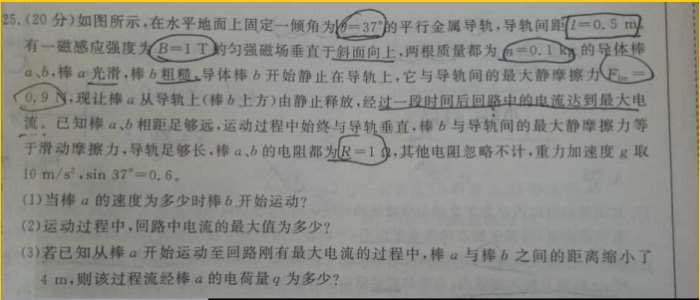 25.(20分)如图所示,在水平地面上固定一倾角为θ=37°的平行金属导轨,导轨间距l=0.5 m,
有一磁感应强度为B=1 T的匀强磁场垂直于斜面向上,两根质量都为m=0.1 kg的导体棒
a、b,棒a光滑,棒b粗糙,导体棒b开始静止在导轨上,它与导轨间的最大静摩擦力Fm=
0.9 N,现让棒a从导轨上(棒b上方)由静止释放,经过一段时间后回路中的电流达到最大电
流。已知棒a、b相距足够远,运动过程中始终与导轨垂直,棒b与导轨间的最大静摩擦力等
于滑动摩擦力,导轨足够长,棒a、b的电阻都为R=1 Ω,其他电阻忽略不计,重力加速度g取
10 m/s²,sin 37°=0.6。
(1)当棒a的速度为多少时棒b开始运动?
(2)运动过程中,回路中电流的最大值为多少?
(3)若已知从棒a开始运动至回路刚有最大电流的过程中,棒a与棒b之间的距离缩小了
4 m,则该过程流经棒a的电荷量q为多少?